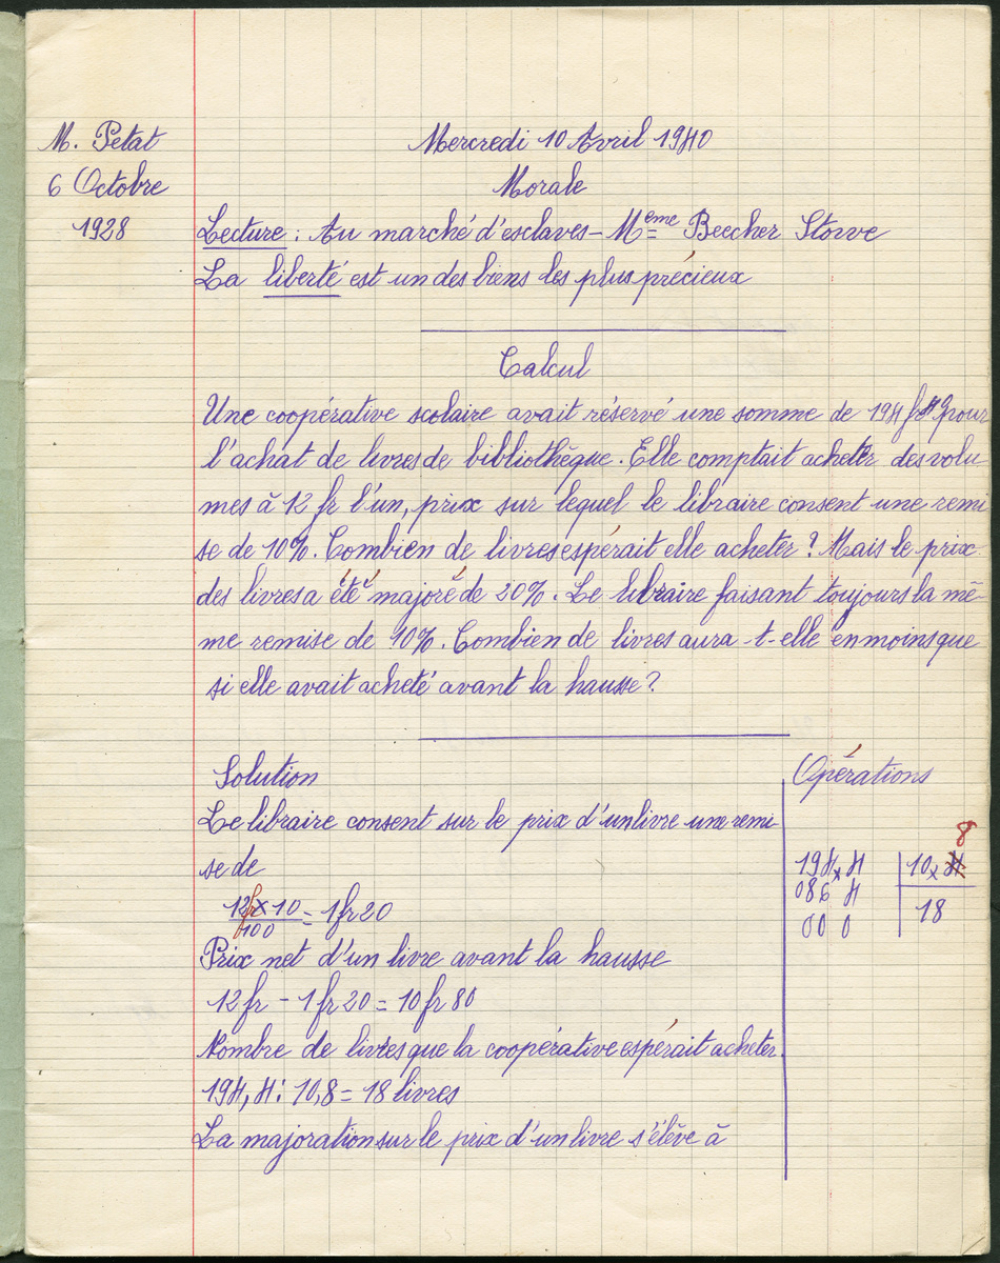 M. Petat
6 Octobre
1928
Mercredi 10 Avril 1940
Morale
Lecture : Au marché d'esclaves - Meme Beecher Stowe
La liberté est un des biens les plus précieux
Calcul
Une coopérative scolaire avait réservé une somme de 194 fr 4 pour
l'achat de livres de bibliothèque. Elle comptait acheter des volu
mes à 12 fr l'un, prix sur lequel le libraire consent une remi
se de 10%. Combien de livres espérait elle acheter ? Mais le prix
des livres a été majoré de 20%. Le libraire faisant toujours la mê-
me remise de 10%. Combien de livres aura-t-elle en moins que
si elle avait acheté avant la hausse ?
Solution
Le libraire consent sur le prix d'un livre une remi
se de
12fr x 10 / 100 = 1fr20
Prix net d'un livre avant la hausse
12 fr - 1 fr 20 = 10 fr 80
Nombre de livres que la coopérative espérait acheter.
194,4 : 10,8 = 18 livres
La majoration sur le prix d'un livre s'élève à
Opérations
8
194,4 | 10,4
086 4 | 18
00 0